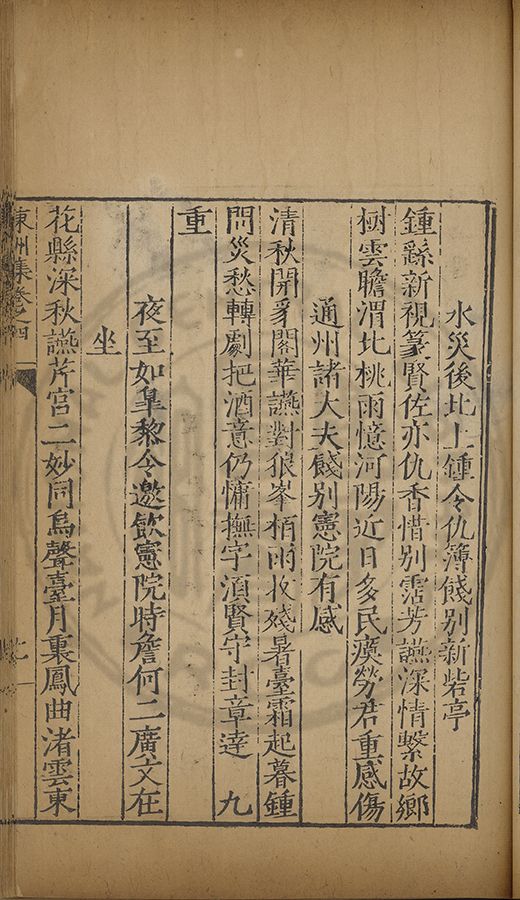 水災後北上鍾令仇簿餞别新砦亭
鍾繇新視篆賢佐亦仇香惜别霑芳讌深情繫故鄉
樹雲瞻渭北桃雨憶河陽近日多民瘼勞君重感傷
通州諸大夫餞别憲院有感
清秋開豸閣華讌對狼峯栢雨收殘暑臺霜起暮鍾
問災愁轉劇把酒意仍慵撫字湏賢守封章達 九
重
夜至如臯黎令邀飲憲院時詹何二廣文在
坐
花縣深秋讌芹宮二妙同烏聲臺月裏鳳曲渚雲東
東州集卷之四